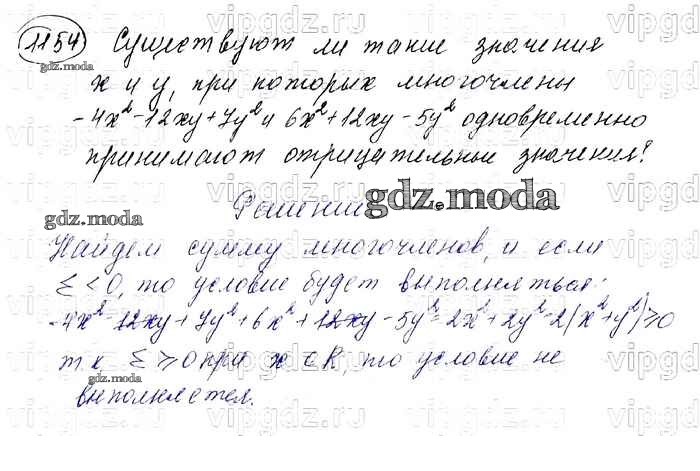 1154 Существуют ли такие значения
gdz.moda
x и y, при которых многочлены
-4x²-12xy+7y² и 6x²+12xy-5y² одновременно
принимают отрицательные значения?
Решение
gdz.moda
gdz.moda
Найдем сумму многочленов, и если
Σ<0, то условие будет выполняться:
-4x²-12xy+7y²+6x²+12xy-5y²=2x²+2y²=2(x²+y²)≥0
т к Σ≥0 при x ∈ R, то условие не
gdz.moda
выполняется.
vipgdz.ru